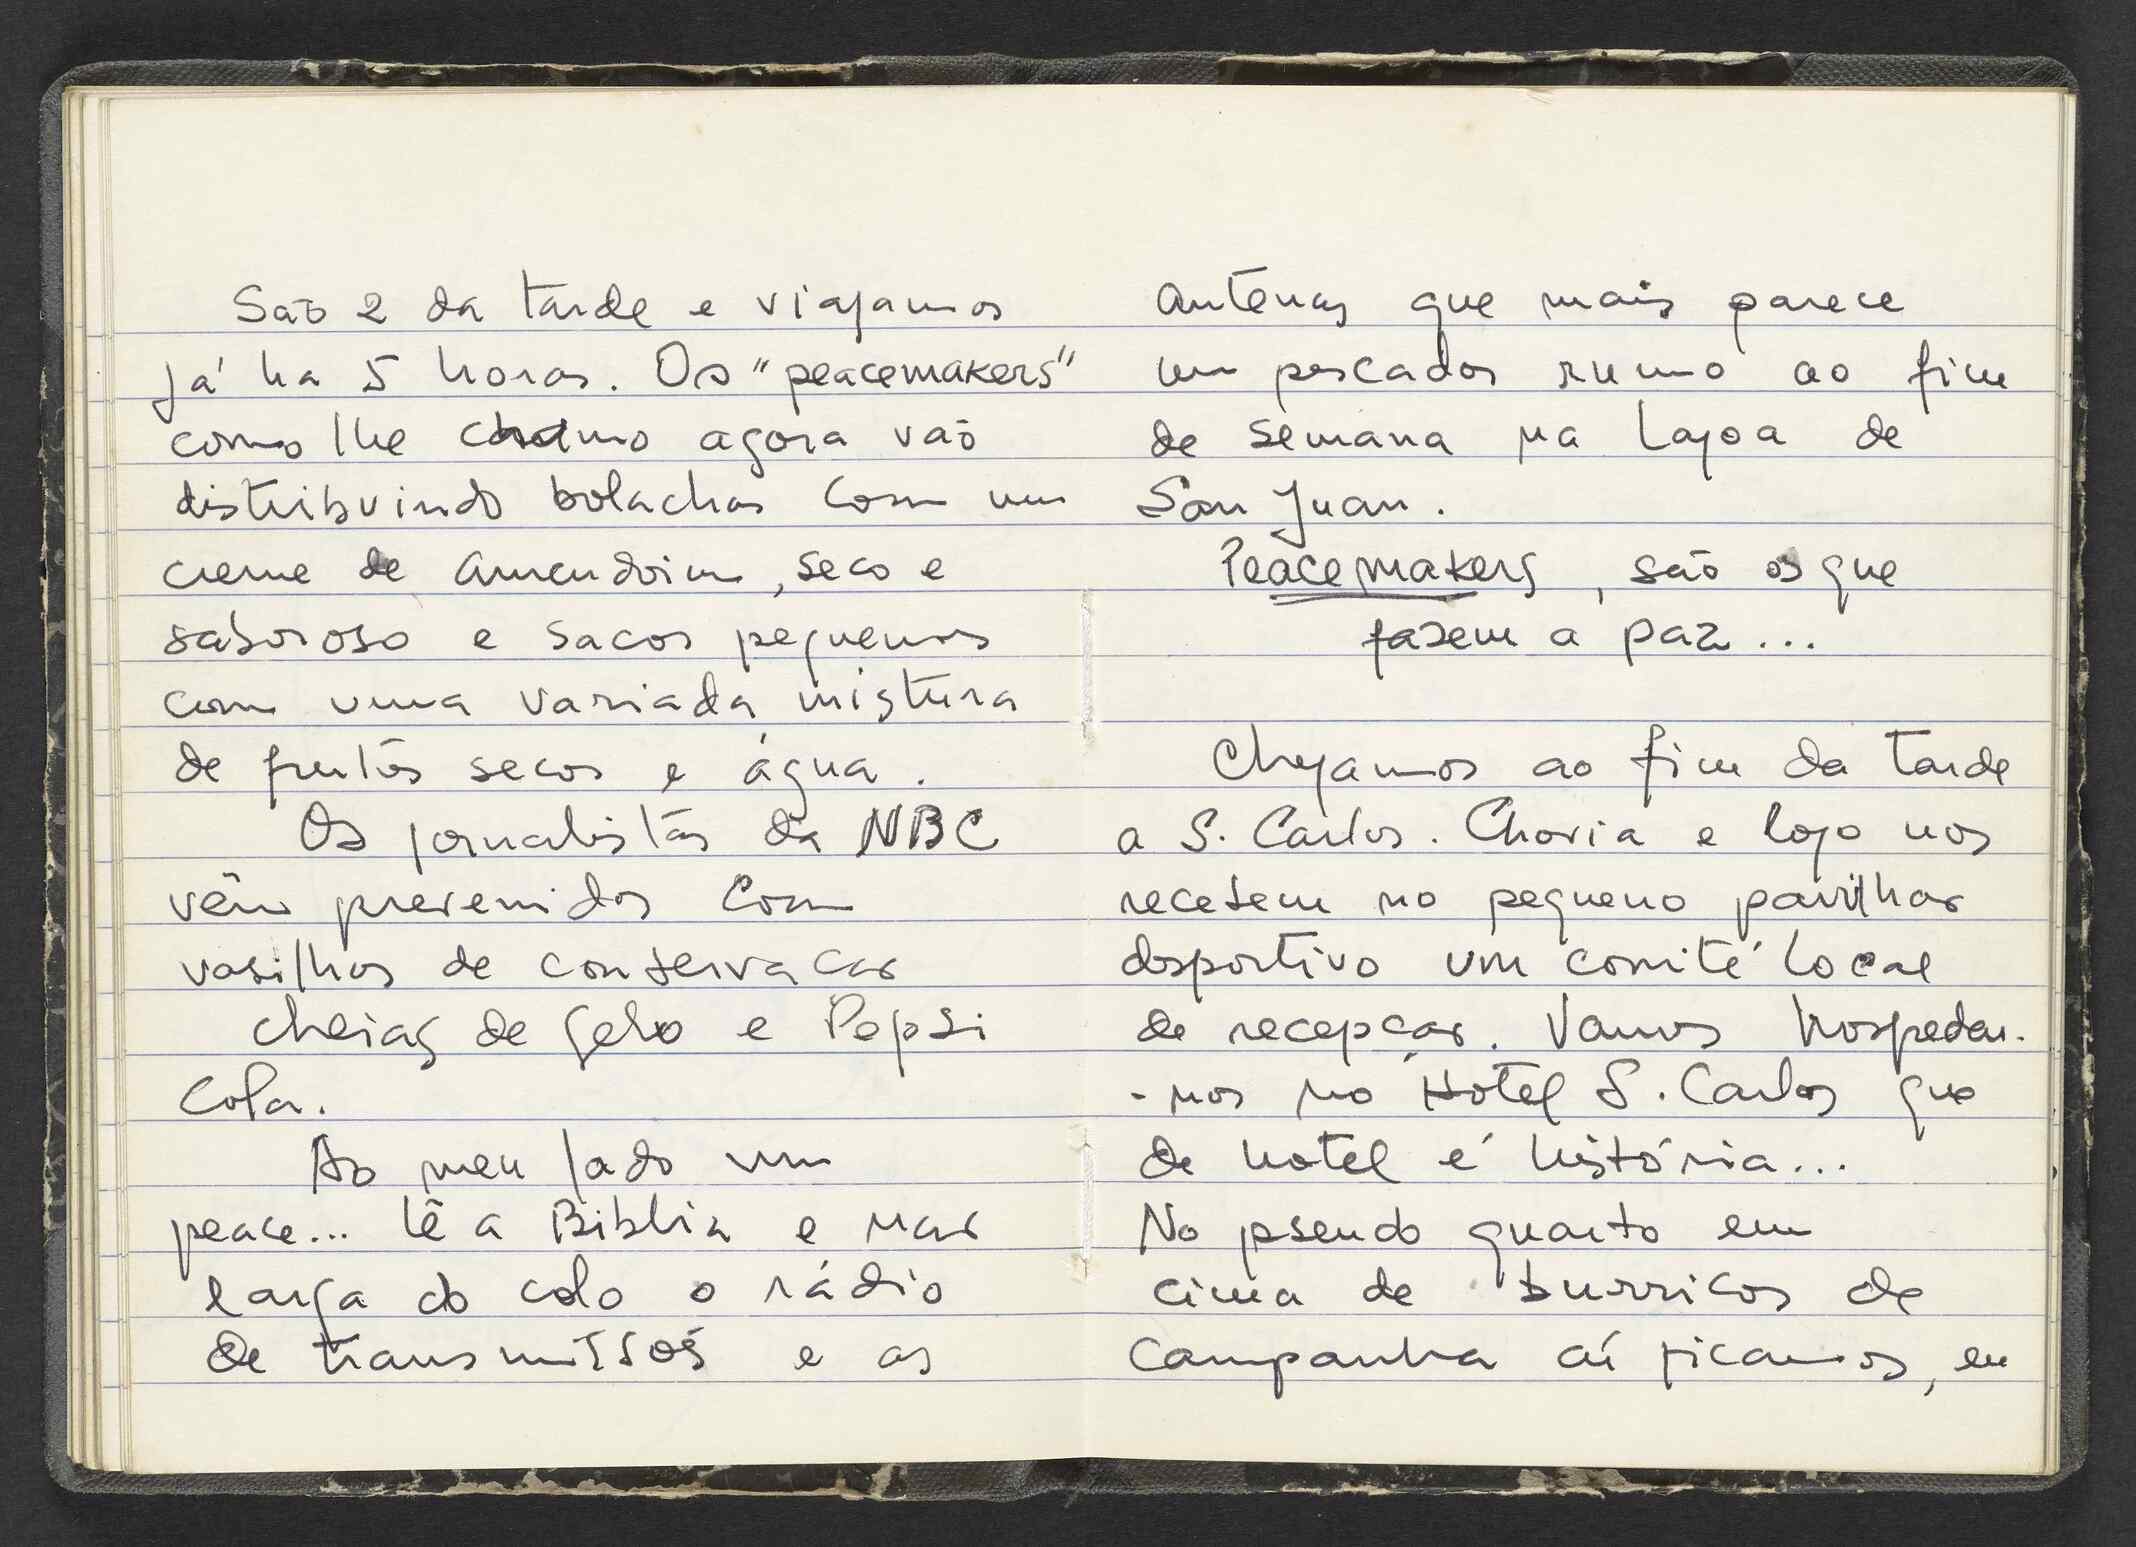 São 2 da tarde e viajamos
já ha 5 horas. Os "peacemakers"
como lhe chamo agora vão
distribuindo bolachas com um
creme de amendoim, seco e
saboroso e sacos pequenos
com uma variada mistura
de frutos secos e água.
Os jornalistas da NBC
vêm prevenidos com
vasilhas de conservacao
cheias de gelo e Pepsi
Cola.
Ao meu lado um
peace... lê a Biblia e nao
larga do colo o rádio
de transmissoẽs e as
antenas que mais parece
um pescador rumo ao fim
de semana na Lagoa de
San Juan.
Peacemakers, são os que
fazem a paz...
Chegamos ao fim da tarde
a S. Carlos. Chovia e logo nos
recebem no pequeno pavilhao
desportivo um comité local
de recepçao. Vamos hospedar-
-nos no Hotel S. Carlos que
de hotel é história...
No pseudo quarto em
cima de burricos de
campanha aí ficamos, eu